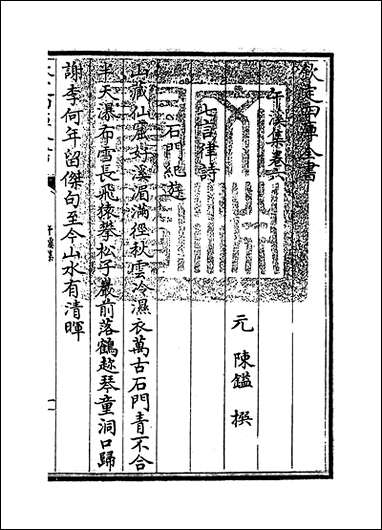 欽定四庫全書
午溪集卷六
元 陳鎰 撰
七言律詩
石門紀遊
山藏仙窟好溪湄滿徑秋雲冷濕衣萬古石門青不合
半天瀑布雪長飛猿攀松子巖前落鶴趂琴童洞口歸
謝李何年留傑句至今山水有清暉
午溪集